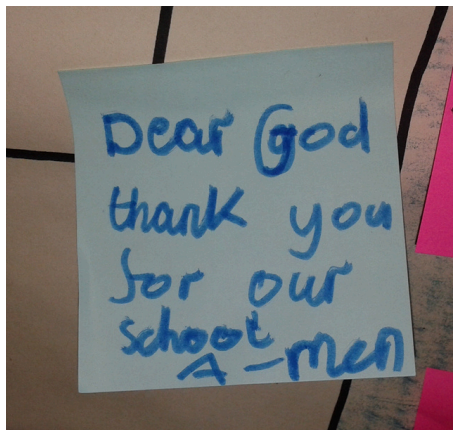 Dear God
thank you
for our
school
A-men